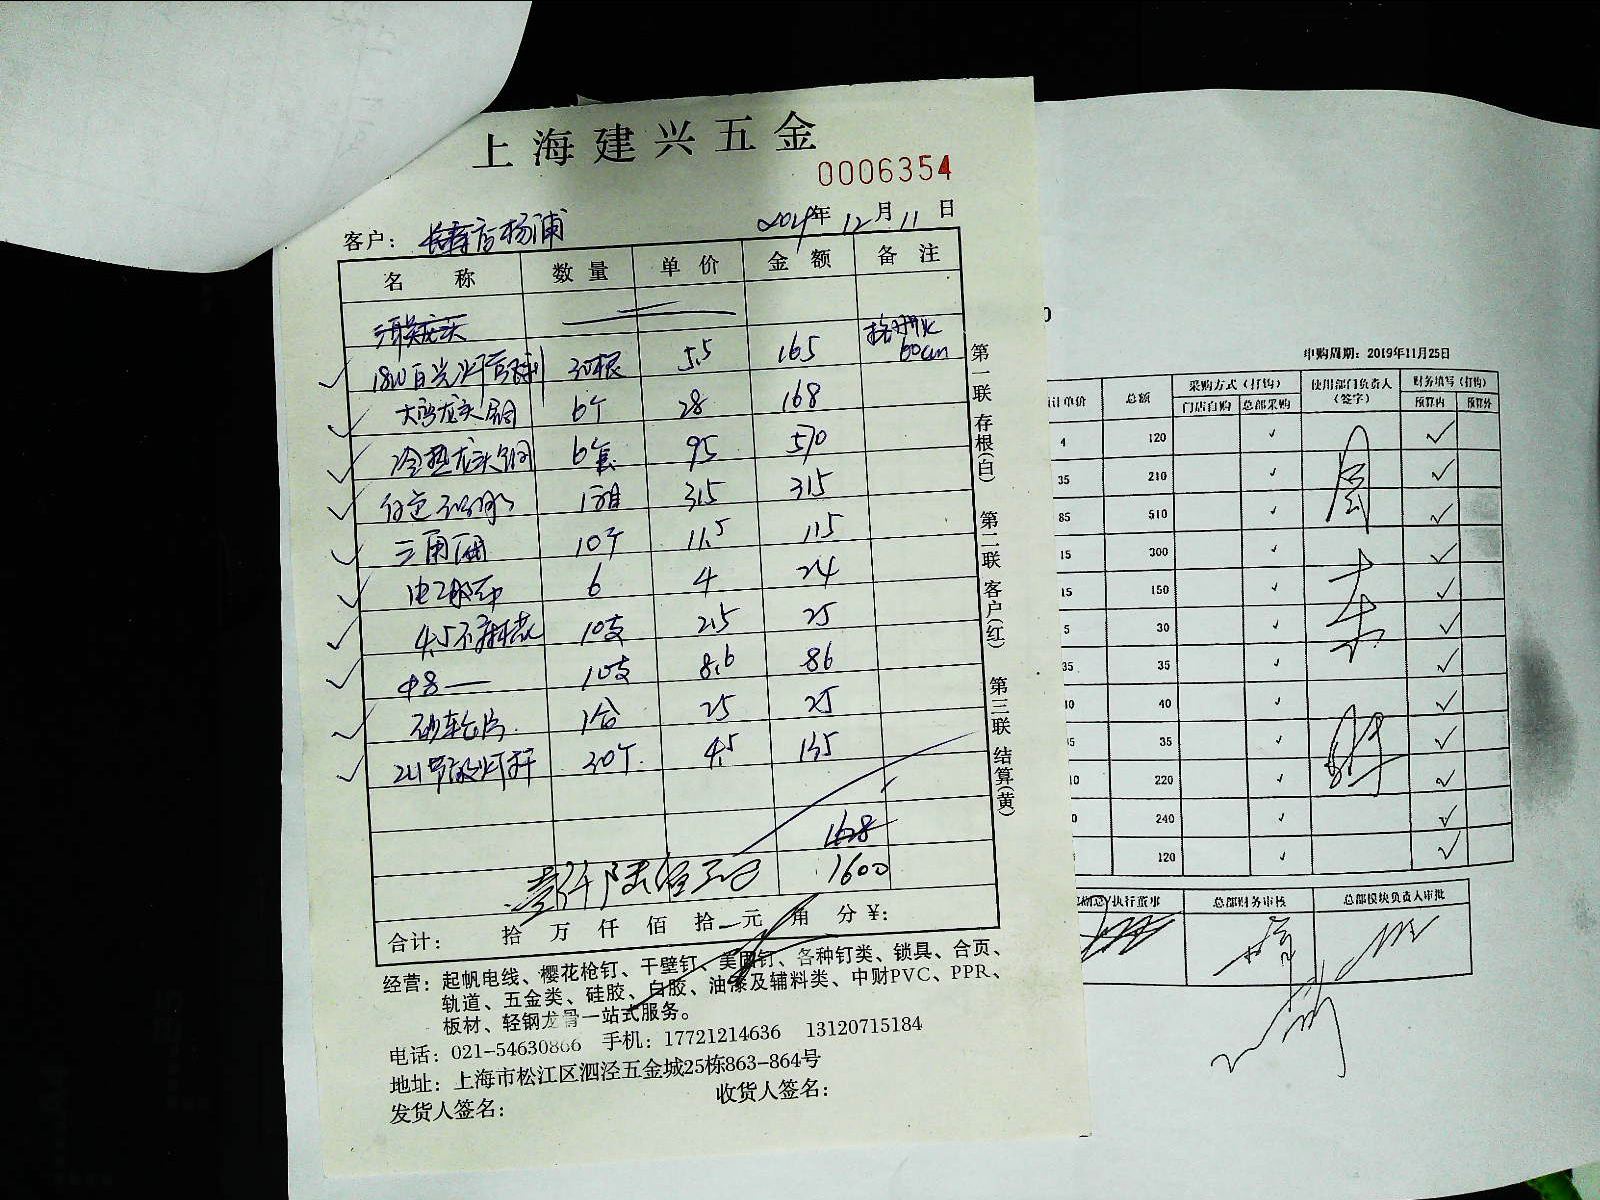 上海建兴五金
0006354
客户: 长寿店杨浦 2019年12月11日
名 称 数量 单价 金额 备注
三联龙头
30根 5.5 165 60cm
6个 28 168
冷热龙头铜 6套 95 570
1箱 315 315
三用阀 10个 11.5 115
电工胶布 6 4 24
4.5不锈钢 10支 2.5 25
φ8— 10支 8.6 86
砂轮片 1合 25 25
30个 4.5 135
1628
壹仟陆佰元 1600
合计: 拾 万 仟 佰 拾 元 角 分 ¥:
第一联 存根(白) 第二联 客户(红) 第三联 结算(黄)
经营: 起帆电线、樱花枪钉、干壁钉、美固钉、各种钉类、锁具、合页、
轨道、五金类、硅胶、白胶、油漆及辅料类、中财PVC、PPR、
板材、轻钢龙骨一站式服务。
电话: 021-54630866 手机: 17721214636 13120715184
地址: 上海市松江区泗泾五金城25栋863-864号
发货人签名: 收货人签名:
申购周期: 2019年11月25日
计单价 总额 采购方式(打钩) 使用部门负责人(签字) 财务填写(打钩)
门店自购 总部采购 预算内 预算外
4 120 ✓ ✓
35 210 ✓ ✓
85 510 ✓ ✓
15 300 ✓ ✓
15 150 ✓ ✓
5 30 ✓ ✓
35 35 ✓ ✓
40 ✓ ✓
35 ✓ ✓
220 ✓ ✓
240 ✓ ✓
120 ✓ ✓
执行董事 总部财务审核 总部模块负责人审批